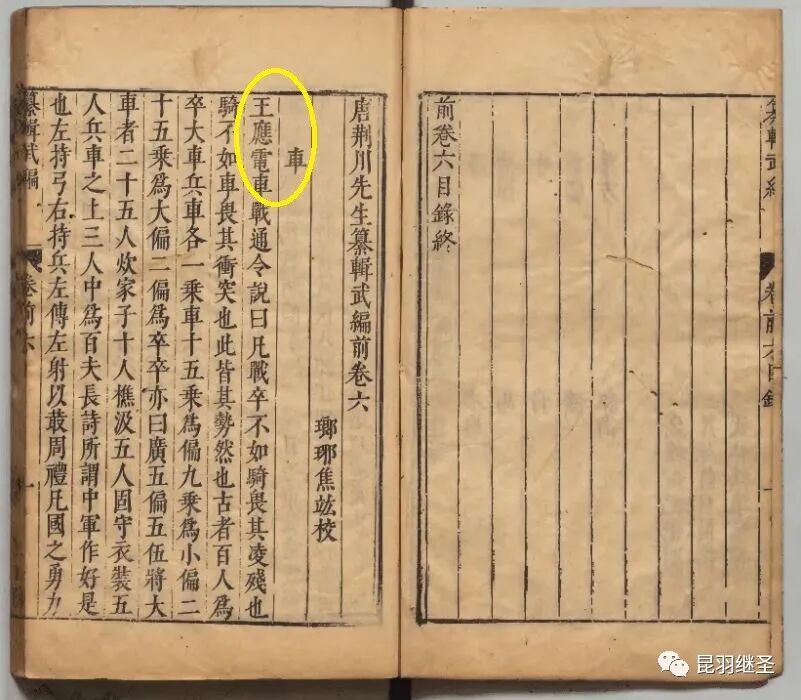 纂輯武編
卷前六目錄
一
前卷六目錄終
唐荆川先生纂輯武編前卷六
瑯琊焦竑校
車
王應電車戰通令說曰凡戰卒不如騎畏其凌殘也
騎不如車畏其衝突也此皆其勢然也古者百人爲
卒大車兵車各一乘車十五乘爲偏九乘爲小偏二
十五乘爲大偏二偏爲卒卒亦曰廣五偏五伍將大
車者二十五人炊家子十人樵汲五人固守衣裝五
人兵車之上三人中爲百夫長詩所謂中軍作好是
也左持弓右持兵左傳左射以菆周禮凡國之勇力
纂輯武編
卷前六
一
昆羽继圣